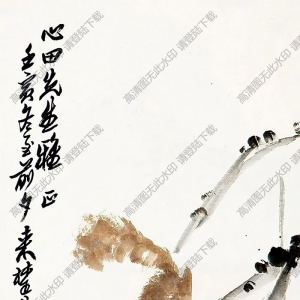 心田先生雅正
壬亥冬至前夕来楚
高清图无此水印 请登陆下载
高清图无此水印 请登陆下载
高清图无此水印 请登陆下载
高清图无此水印 请登陆下载